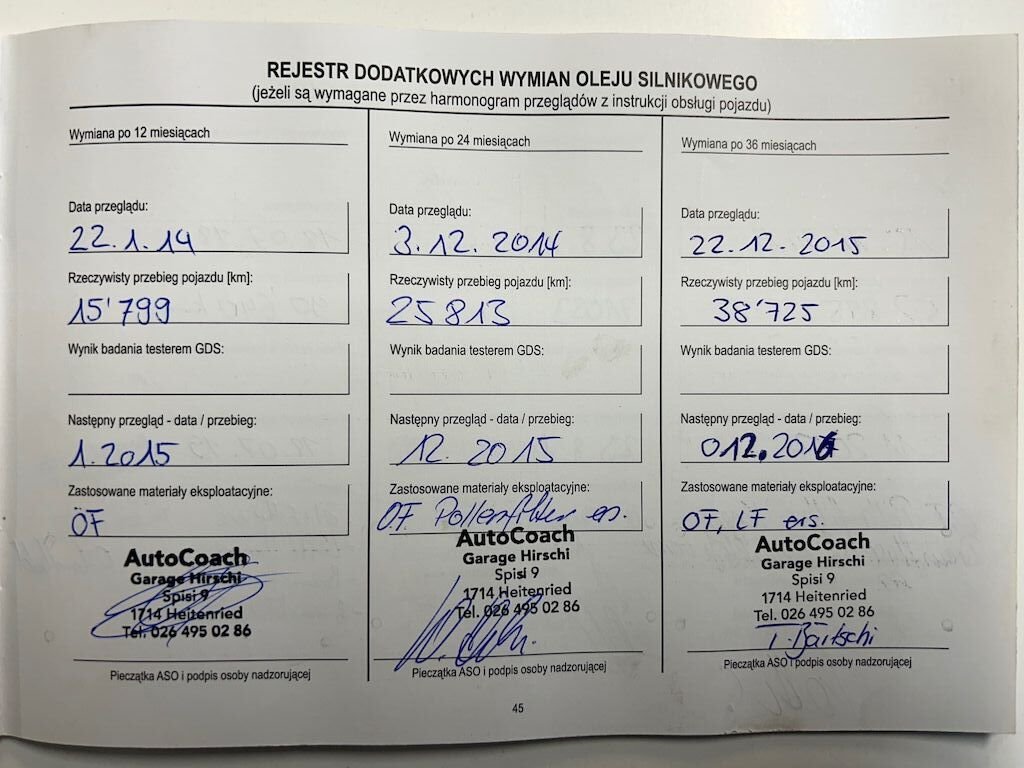 REJESTR DODATKOWYCH WYMIAN OLEJU SILNIKOWEGO
(jeżeli są wymagane przez harmonogram przeglądów z instrukcji obsługi pojazdu)
Wymiana po 12 miesiącach
Data przeglądu:
22.1.14
Rzeczywisty przebieg pojazdu [km]:
15'799
Wynik badania testerem GDS:
Następny przegląd - data / przebieg:
1.2015
Zastosowane materiały eksploatacyjne:
ÖF
AutoCoach
Garage Hirschi
Spisi 9
1714 Heitenried
Tel. 026 495 02 86
Pieczątka ASO i podpis osoby nadzorującej
Wymiana po 24 miesiącach
Data przeglądu:
3.12.2014
Rzeczywisty przebieg pojazdu [km]:
25813
Wynik badania testerem GDS:
Następny przegląd - data / przebieg:
12.2015
Zastosowane materiały eksploatacyjne:
ÖF Pollenfilter ers.
AutoCoach
Garage Hirschi
Spisi 9
1714 Heitenried
Tel. 026 495 02 86
Pieczątka ASO i podpis osoby nadzorującej
Wymiana po 36 miesiącach
Data przeglądu:
22.12.2015
Rzeczywisty przebieg pojazdu [km]:
38'725
Wynik badania testerem GDS:
Następny przegląd - data / przebieg:
012.2016
Zastosowane materiały eksploatacyjne:
ÖF, LF ers.
AutoCoach
Garage Hirschi
Spisi 9
1714 Heitenried
Tel. 026 495 02 86
T. Bärtschi
Pieczątka ASO i podpis osoby nadzorującej
45